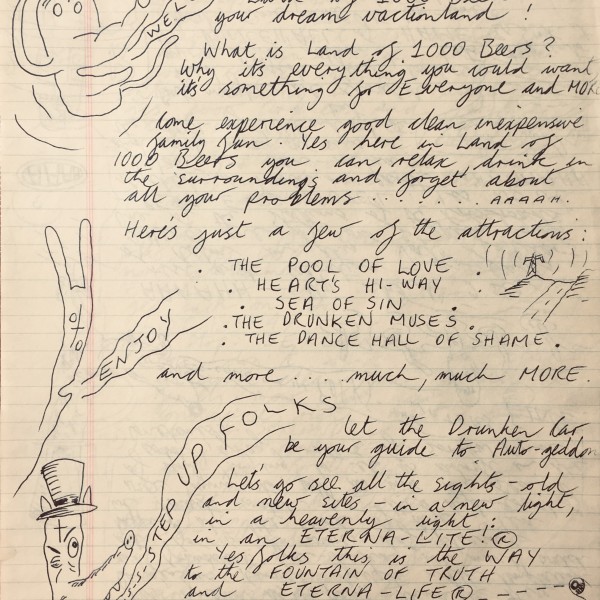 Land of 1000 Beers
your dream vactionland !
WEL
What is Land of 1000 Beers ?
Why its everything you could want
its something for Everyone and MORE
Come experience good clean inexpensive
family fun. Yes here in Land of
1000 Beers you can relax, drink in
the surroundings and forget about
all your problems . . . . . . . AAAAH.
Here's just a few of the attractions :
. THE POOL OF LOVE .
. HEART'S HI-WAY
. SEA OF SIN .
. THE DRUNKEN MUSES .
. THE DANCE HALL OF SHAME .
ENJOY
and more .... much, much MORE.
S-S-STEP UP FOLKS
let the Drunken Car
be your guide to Auto-geddon
Let's go see all the sights - old
and new sites - in a new light,
in a heavenly light :
in an ETERNA-LITE! ®
Yes folks this is the WAY
to the FOUNTAIN OF TRUTH
and ETERNA-LIFE ®